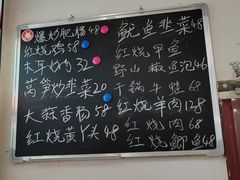 爆炒肥肠48
红烧鸡58
木耳炒肉32
莴笋炒韭菜20
大蒜香肠58
红烧黄丫头48
鱿鱼韭菜48
红烧甲鱼
野山椒鱼泡46
干锅牛蛙68
红烧羊肉128
红烧肉68
红烧鲫鱼48